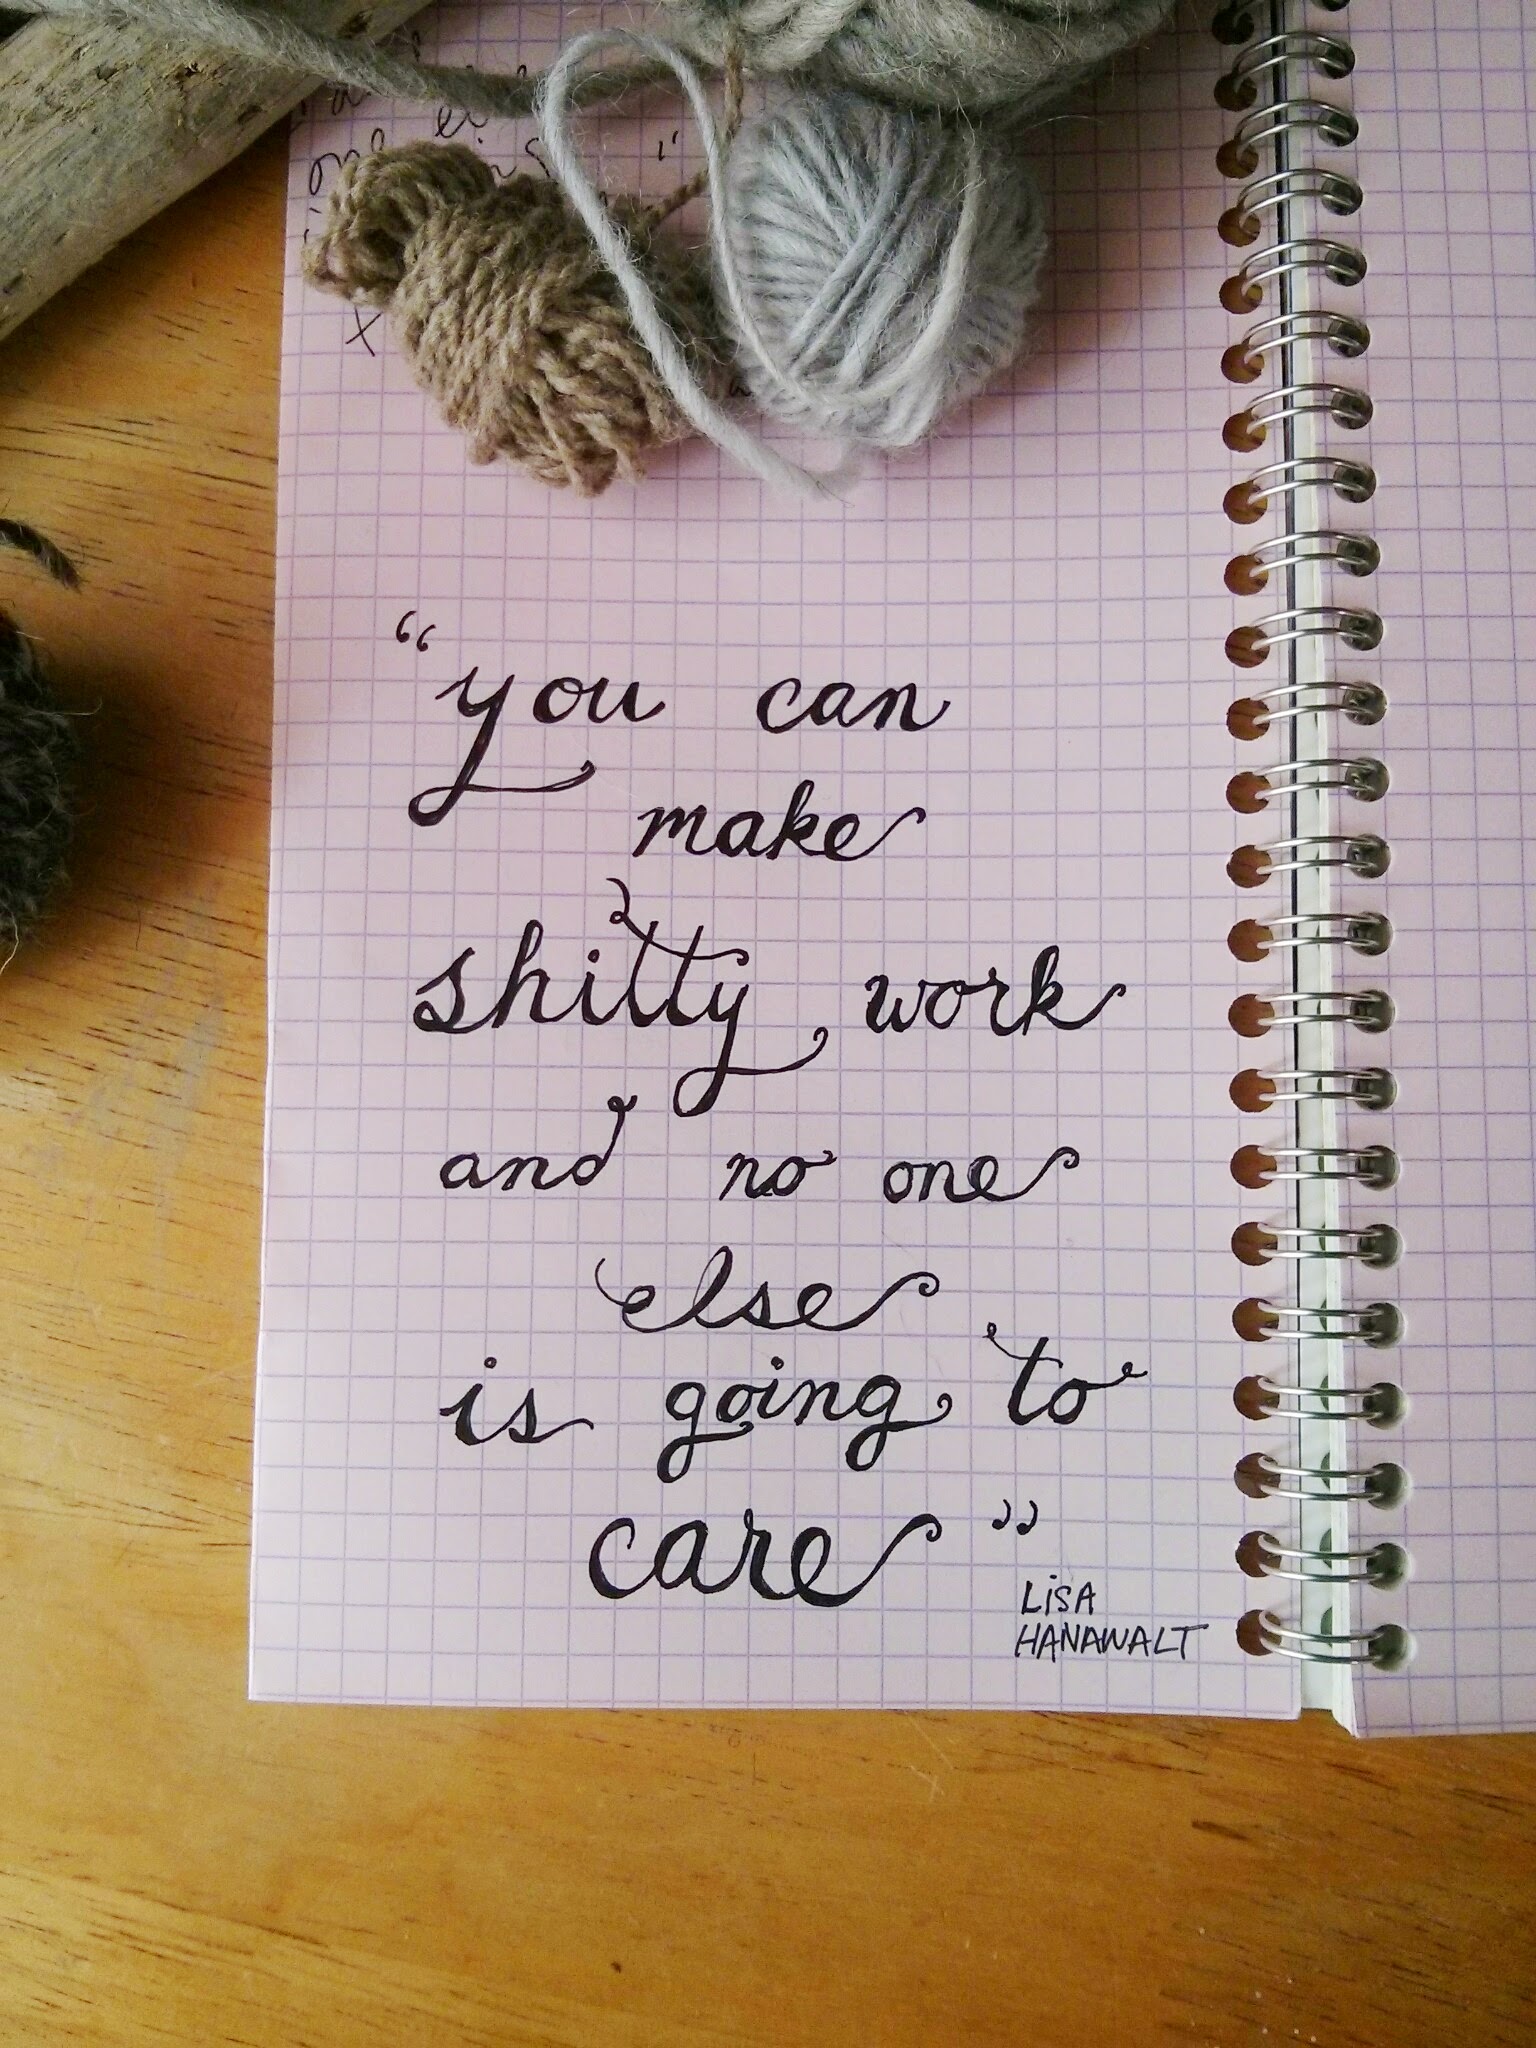 one
"
+
“you can
make
shitty work
and no one
else
is going to
care”
LiSA
HANAWALT